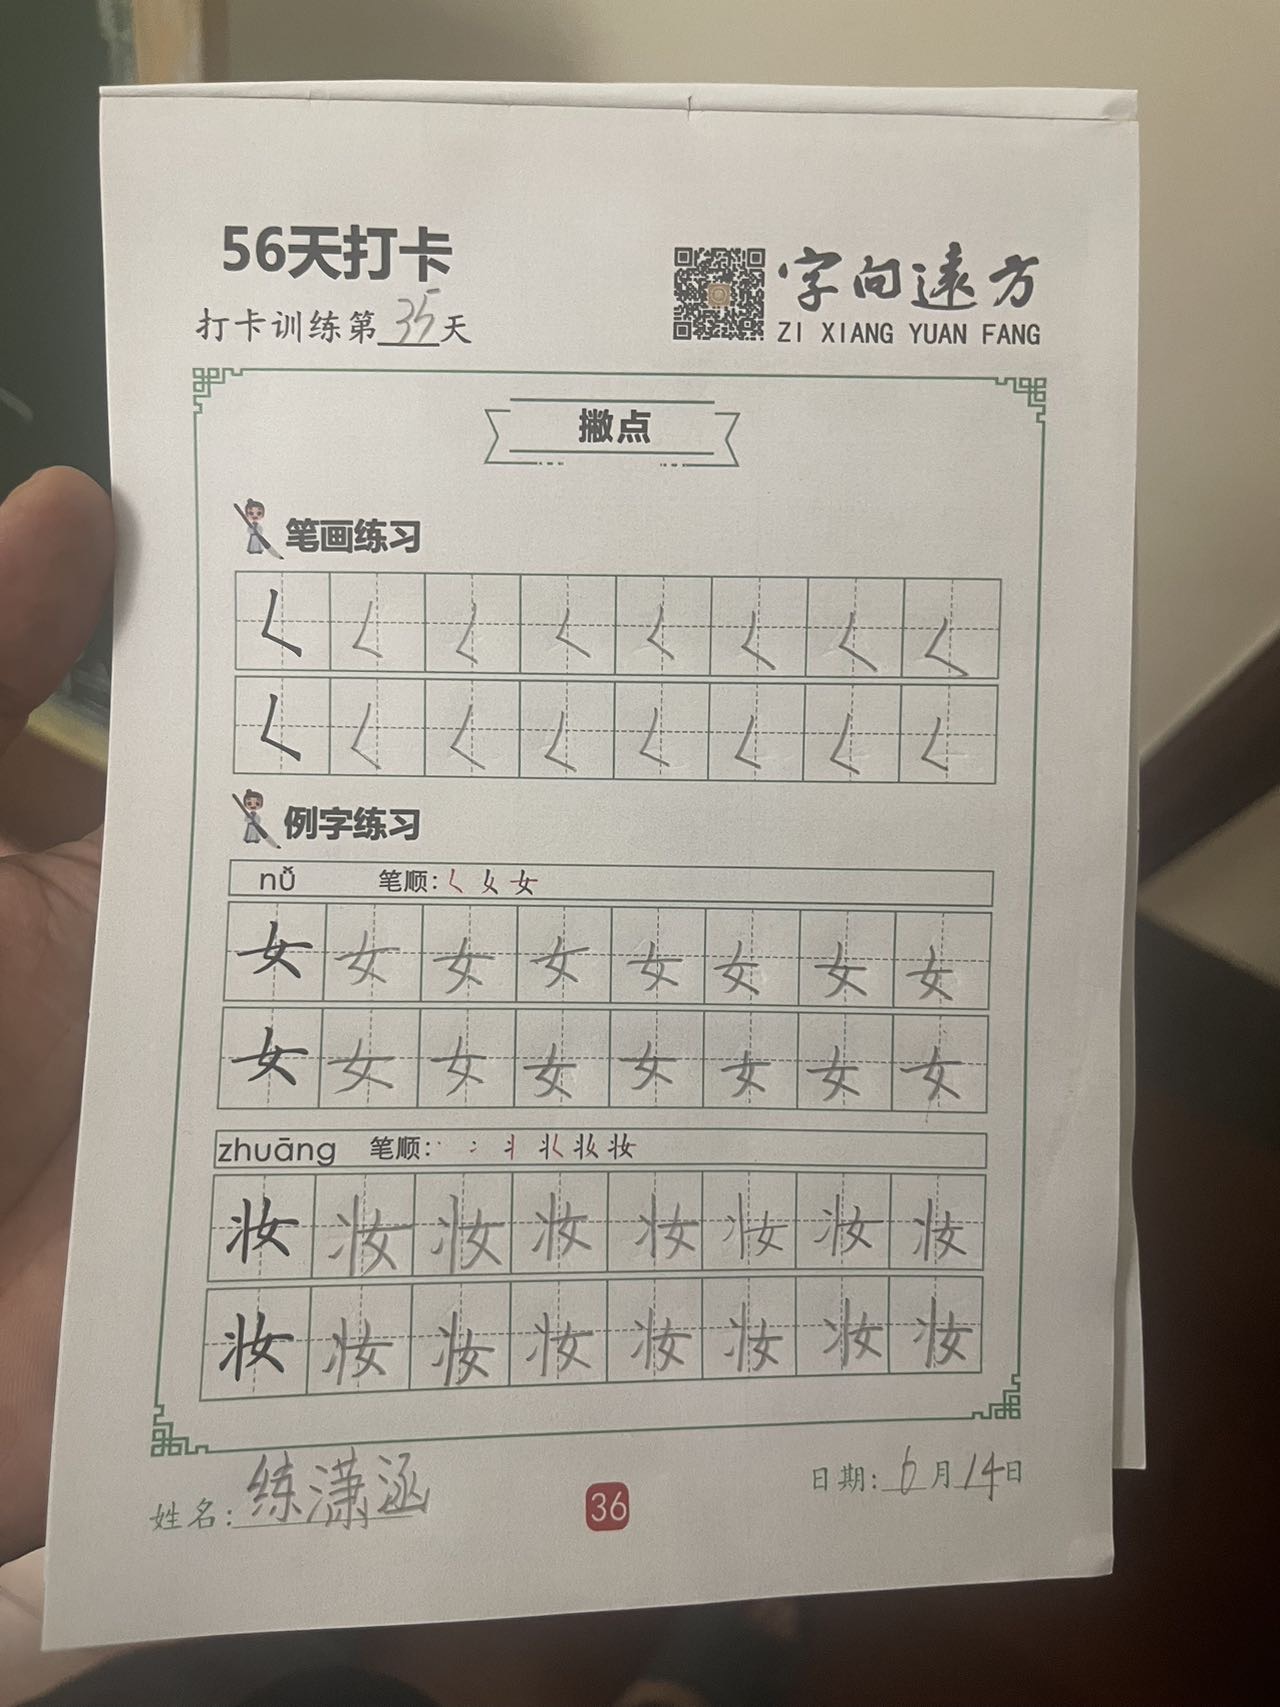 56天打卡
打卡训练第35天
字向遠方
ZI XIANG YUAN FANG
撇点
笔画练习
𡿨 𡿨 𡿨 𡿨 𡿨 𡿨 𡿨 𡿨
𡿨 𡿨 𡿨 𡿨 𡿨 𡿨 𡿨 𡿨
例字练习
nǚ 笔顺: 𡿨 女 女
女 女 女 女 女 女 女 女
女 女 女 女 女 女 女 女
zhuāng 笔顺: 妆 妆
妆 妆 妆 妆 妆 妆 妆 妆
妆 妆 妆 妆 妆 妆 妆 妆
姓名: 练潇涵
36
日期: 6月14日